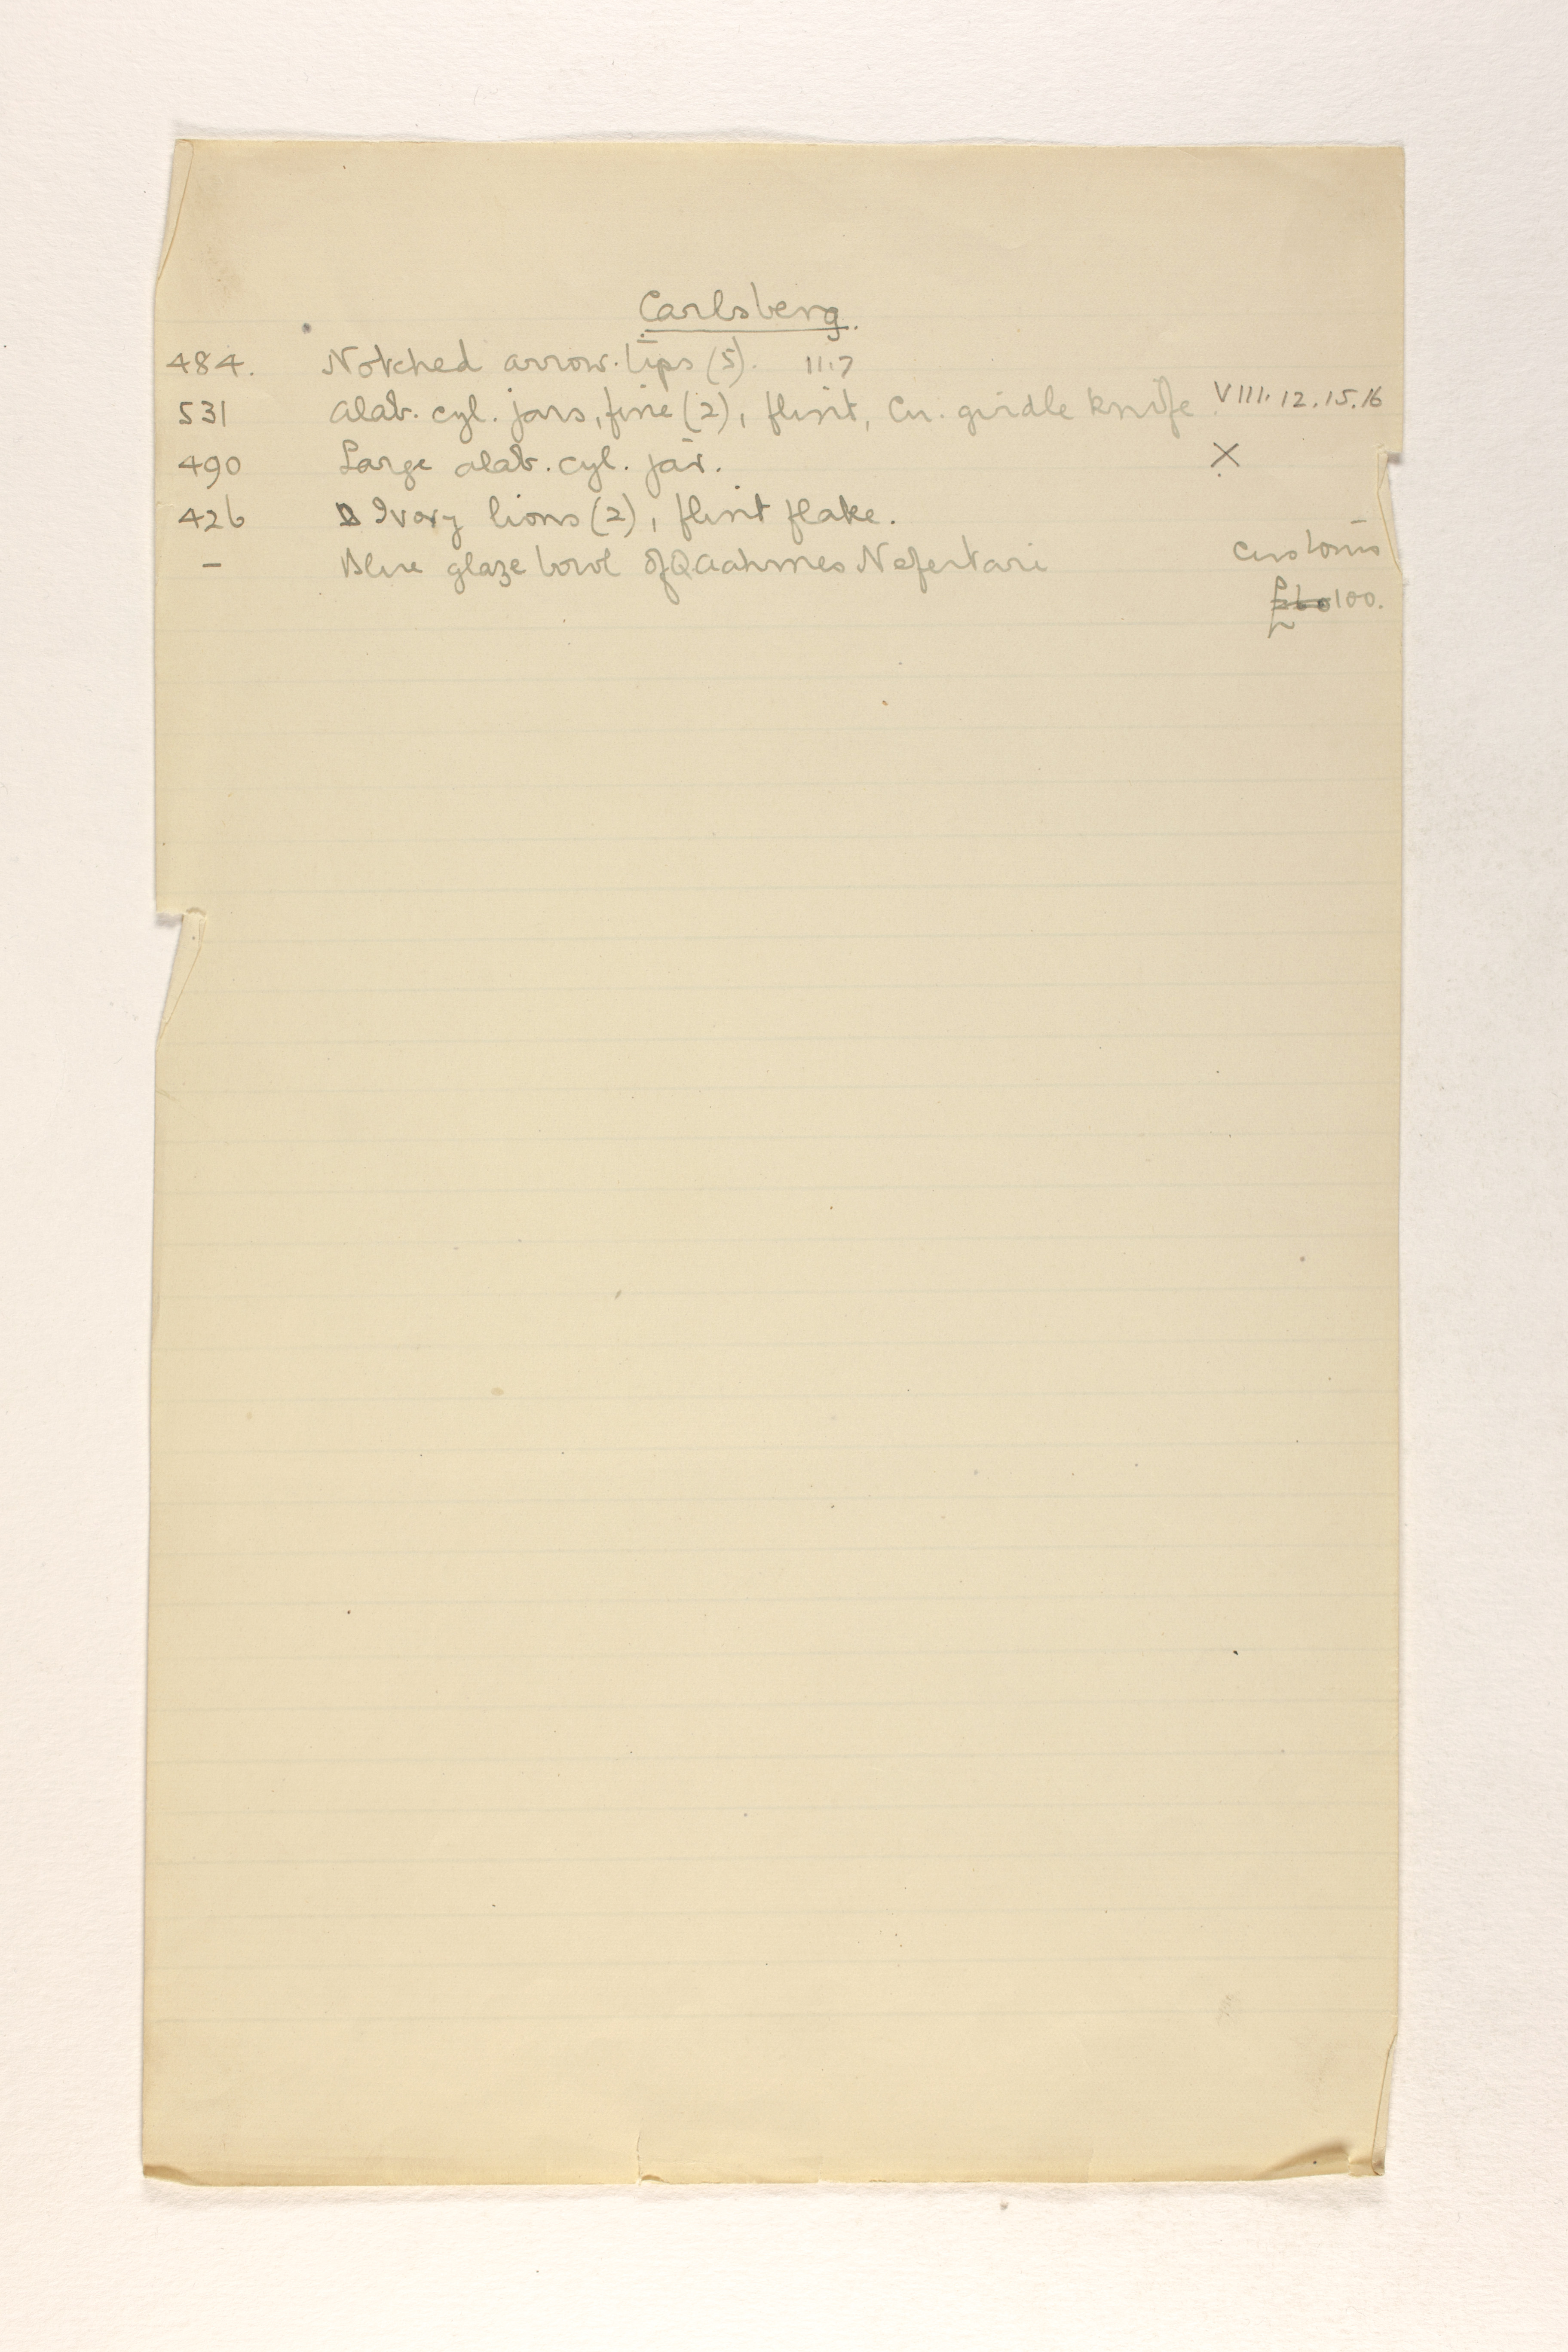 Carlsberg.
484. Notched arrow-tips (5). 11.7
531 Alab. cyl. jars, fine (2), flint, Cu. girdle knife VIII. 12. 15. 16
490 Large alab. cyl. jar. X
426 Ivory lions (2), flint flake.
– Blue glaze bowl of Q Aahmes Nefertari customs
£ 100.